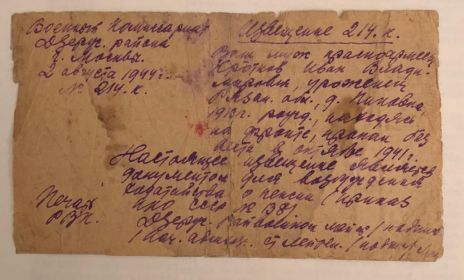 Военный Комиссариат
Дзерж. района
г. Москвы.
2 августа 1944 г.
№ 214. к.
Извещение 214. к.
Ваш муж красноармеец
Кротков Иван Влади-
мирович, уроженец
Рязан. обл., д.
1913 г. рожд., находясь
на фронте, пропал без
вести в октябре 1941 г.
Настоящее извещение является
документом для возбуждения
ходатайства о пенсии (приказ
НКО СССР № 338)
Печать
РВК.
Дзерж. Райвоенком майор /подпись/
Нач. ст. лейтен.